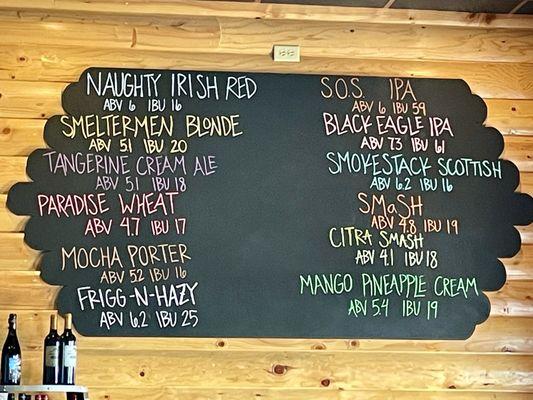 NAUGHTY IRISH RED
ABV 6 IBU 16
SMELTERMEN BLONDE
ABV 51 IBU 20
TANGERINE CREAM ALE
ABV 51 IBU 18
PARADISE WHEAT
ABV 4.7 IBU 17
MOCHA PORTER
ABV 52 IBU 16
FRIGG-N-HAZY
ABV 6.2 IBU 25
S.O.S. IPA
ABV 6 IBU 59
BLACK EAGLE IPA
ABV 7.3 IBU 61
SMOKESTACK SCOTTISH
ABV 6.2 IBU 16
SMaSH
ABV 4.8 IBU 19
CITRA SMASH
ABV 4.1 IBU 18
MANGO PINEAPPLE CREAM
ABV 5.4 IBU 19